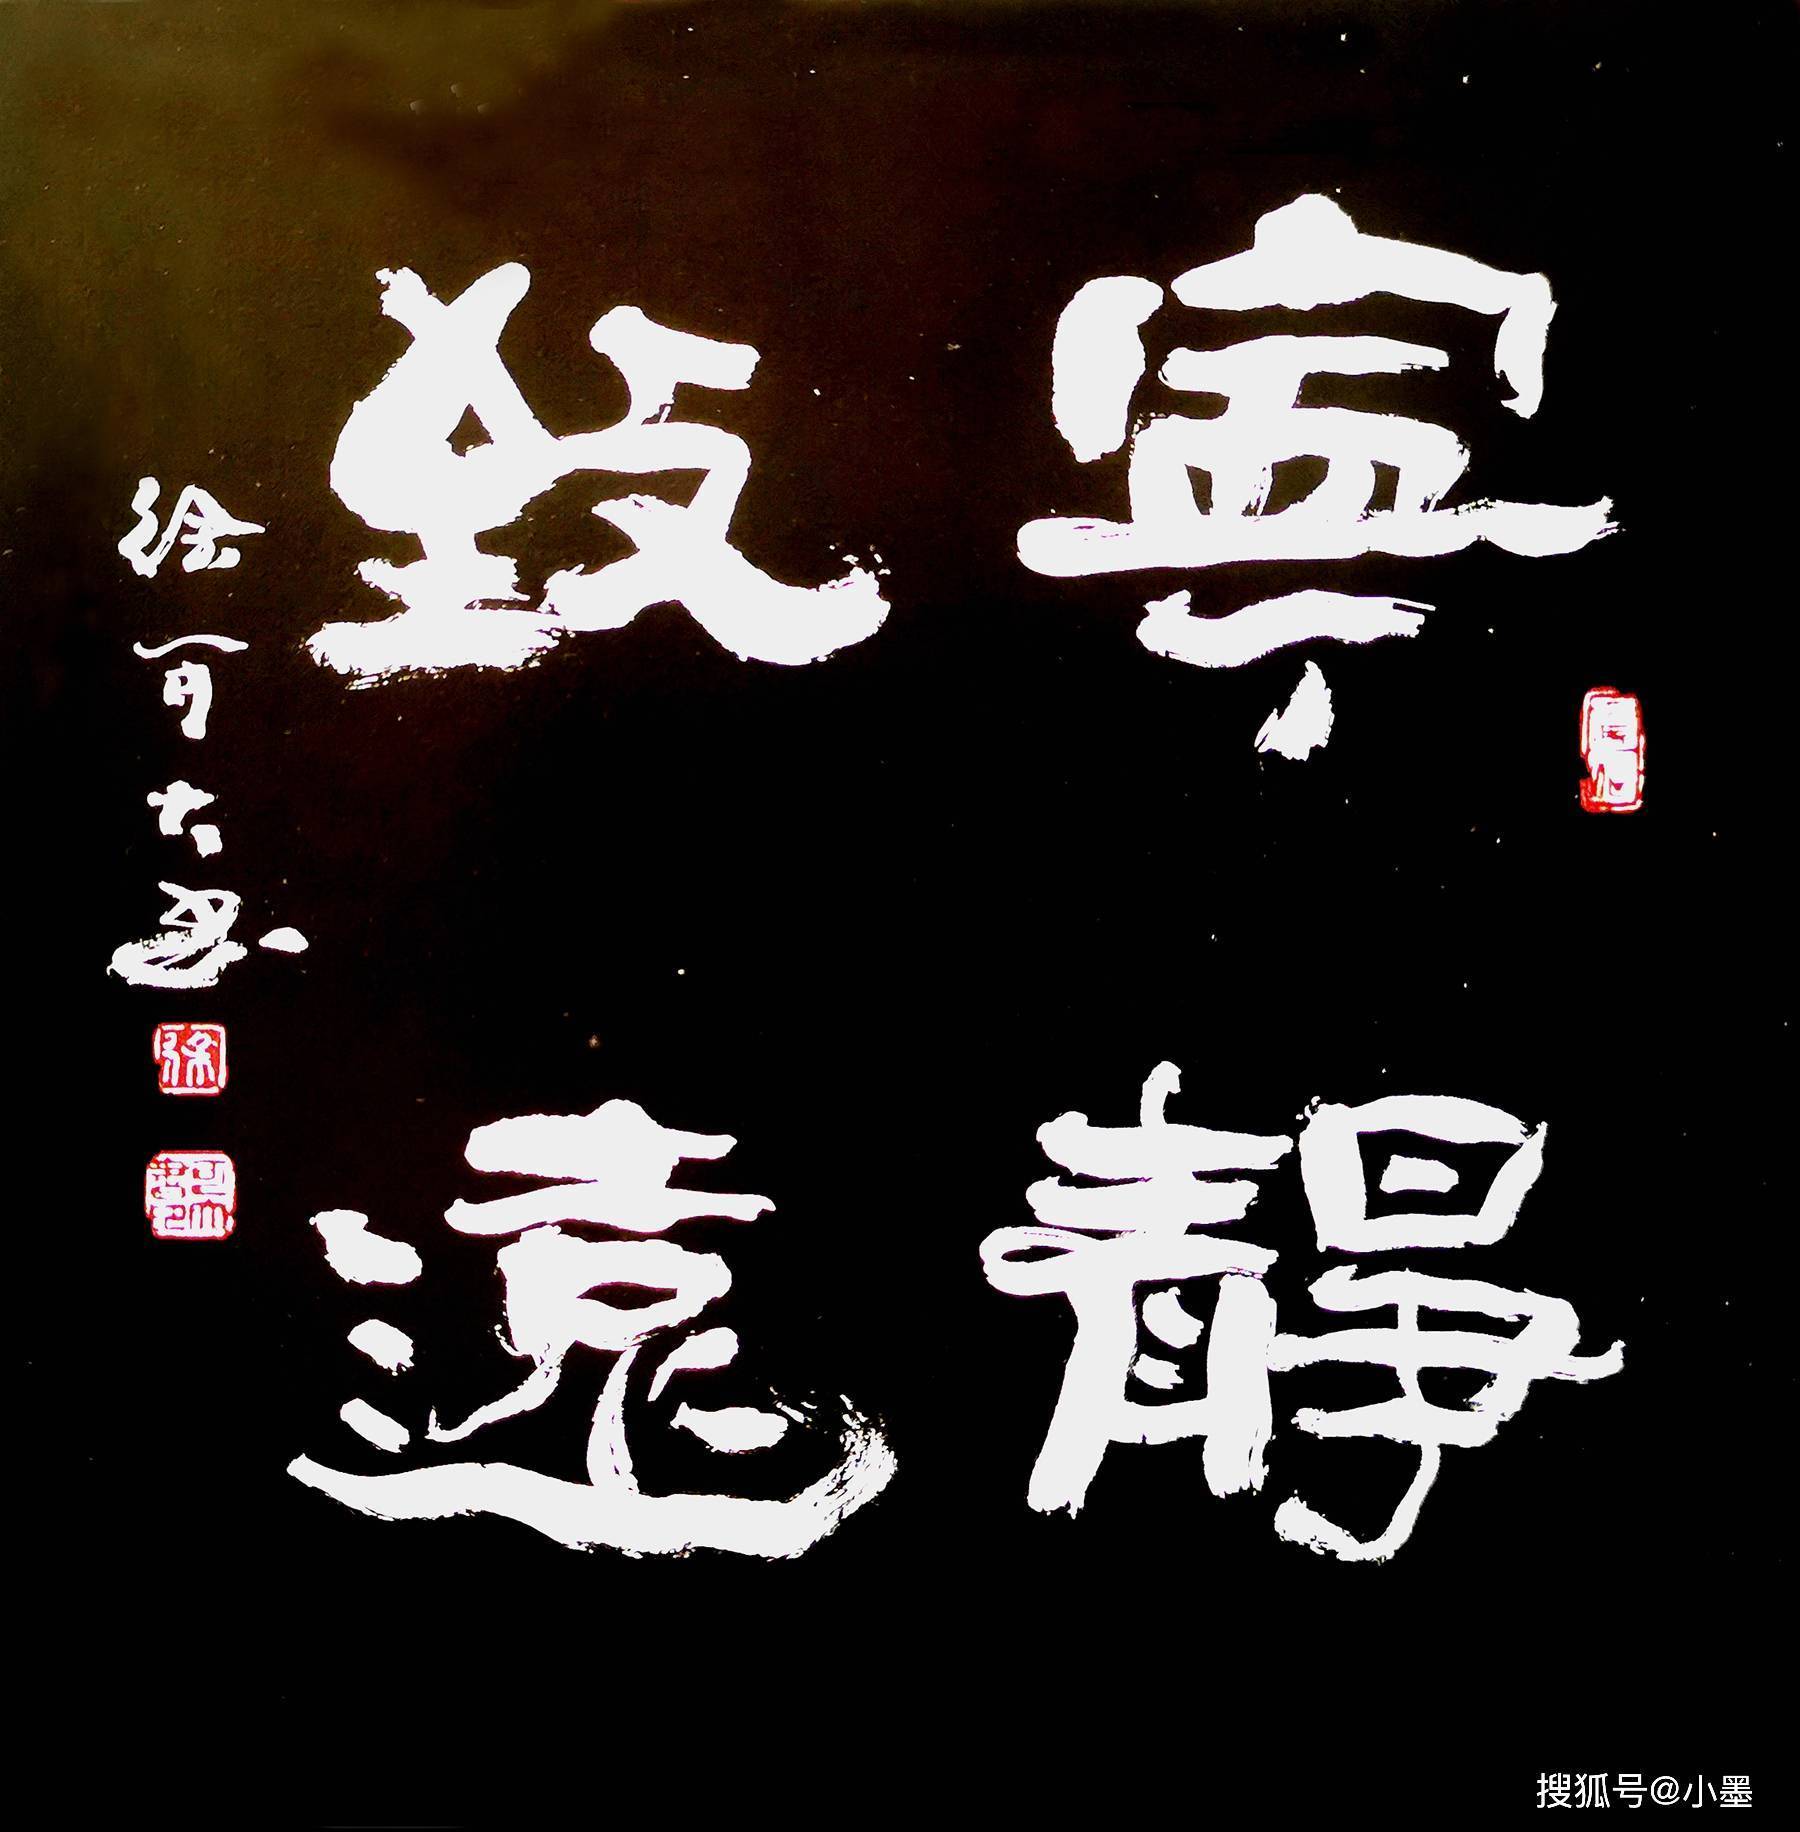 寧靜
致遠
徐可大書
徐
搜狐号@小墨